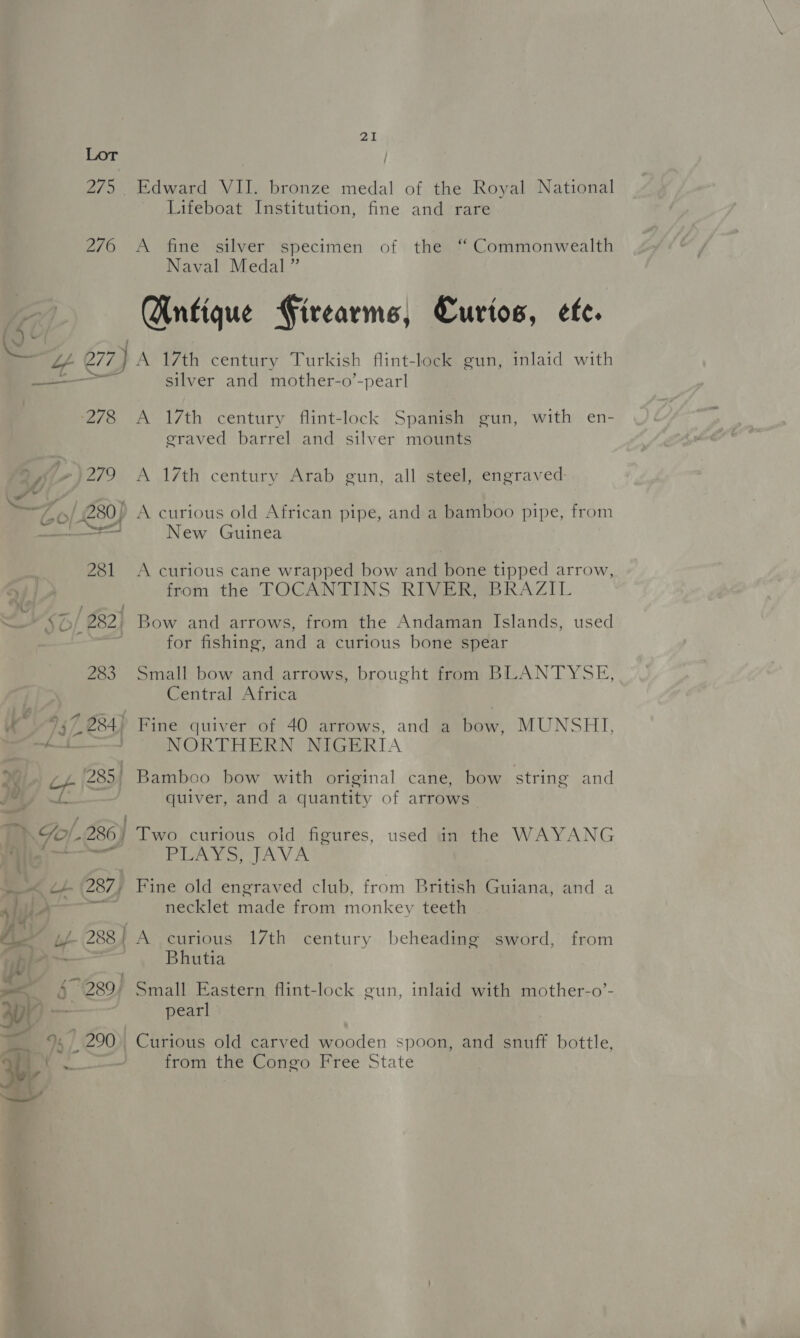 21
Lot
275 Edward VII. bronze medal of the Royal National
Lifeboat Institution, fine and rare
276 A fine silver specimen of the “Commonwealth
Naval Medal”
Antique Firearms, Curios, etc.
277 A 17th century Turkish flint-lock gun, inlaid with
silver and mother-o’-pearl
278 A 17th century flint-lock Spanish gun, with en-
graved barrel and silver mounts
279 A 17th century Arab gun, all steel, engraved
280 A curious old African pipe, and a bamboo pipe, from
New Guinea
281 A curious cane wrapped bow and bone tipped arrow,
from the TOCANTINS RIVER, BRAZIL
282 Bow and arrows, from the Andaman Islands, used
for fishing, and a curious bone spear
283 Small bow and arrows, brought from BLANTYSE,
Central Africa
284 Fine quiver of 40 arrows, and a bow, MUNSHI,
NORTHERN NIGERIA
285 Bamboo bow with original cane, bow string and
quiver, and a quantity of arrows
286 Two curious old figures, used in the WAYANG
PLAYS, JAVA
287 Fine old engraved club, from British Guiana, and a
necklet made from monkey teeth
288 A curious 17th century beheading sword, from
Bhutia
289 Small Eastern flint-lock gun, inlaid with mother-o’-
pearl
290 Curious old carved wooden spoon, and snuff bottle,
from the Congo Free State